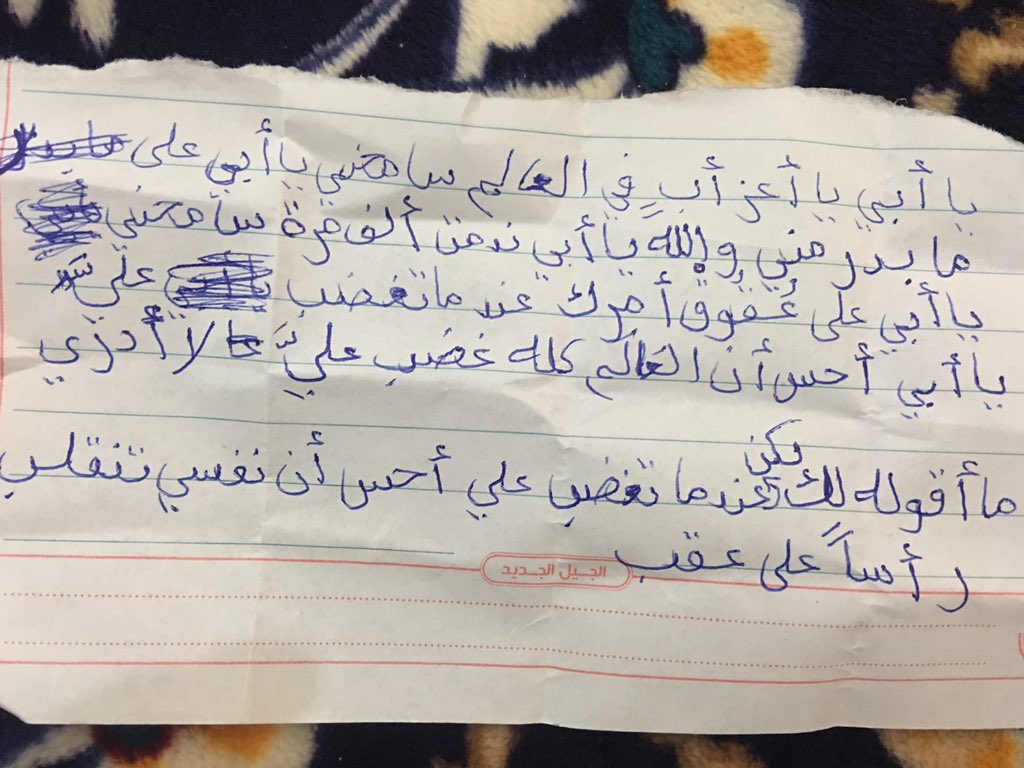 يا أبي يا أعز أبٍ في العالم سامحني يا أبي على
ما بدر مني والله يا أبي ندمت ألف مرة سامحني
يا أبي على عُقوق أمرك عندما تغضب علي
يا أبي أحس أن العالم كله غضب عليَّ لا أدري
ما أقوله لك يكن عندما تغضب علي أحس أن نفسي تنقلب
رأساً على عقب
الجيل الجديد